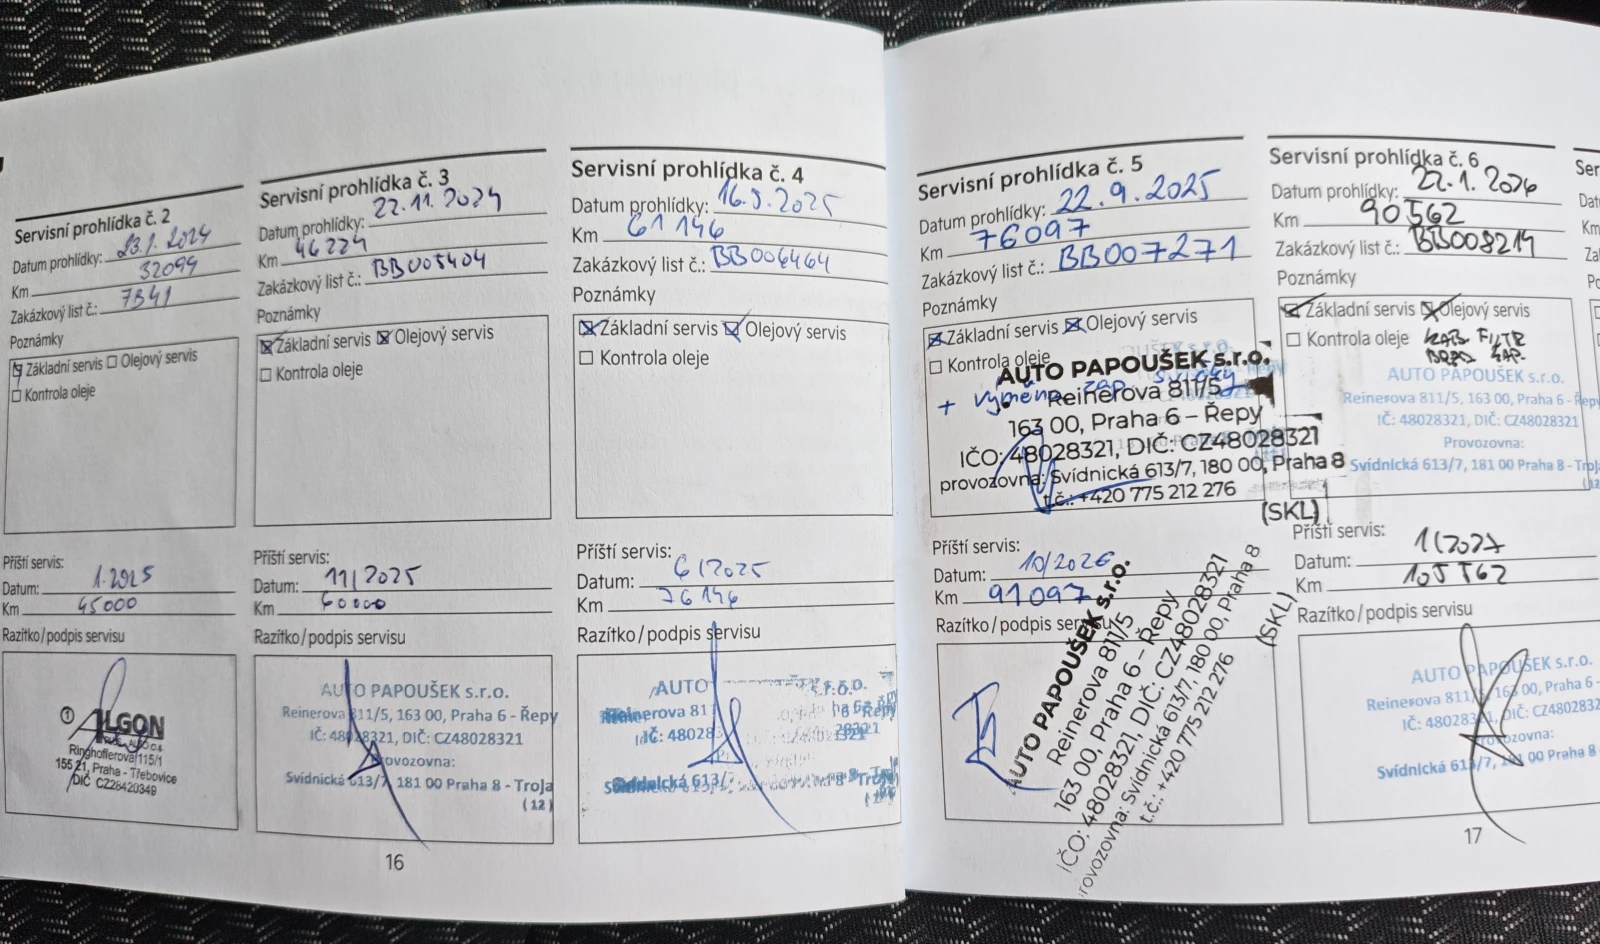 Servisní prohlídka č. 2
Datum prohlídky: 23.1.2024
Km 32099
Zakázkový list č.: 7341
Poznámky
Základní servis Olejový servis
Kontrola oleje
Příští servis:
Datum: 1.2025
Km 45000
Razítko/podpis servisu
ALGON
Ringhofferova 115/1
155 21, Praha - Třebovice
DIČ CZ28420349
Servisní prohlídka č. 3
Datum prohlídky: 22.11.2024
Km 46224
Zakázkový list č.: BB005404
Poznámky
Základní servis Olejový servis
Kontrola oleje
Příští servis:
Datum: 11/2025
Km 60000
Razítko/podpis servisu
AUTO PAPOUŠEK s.r.o.
Reinerova 811/5, 163 00, Praha 6 - Řepy
IČ: 48028321, DIČ: CZ48028321
Provozovna:
Svídnická 613/7, 181 00 Praha 8 - Troja
(12)
16
Servisní prohlídka č. 4
Datum prohlídky: 16.5.2025
Km 61146
Zakázkový list č.: BB006464
Poznámky
Základní servis Olejový servis
Kontrola oleje
Příští servis:
Datum: 6/2025
Km 76146
Razítko/podpis servisu
AUTO s.r.o.
Reinerova 81 6 - Řepy
IČ: 48028321
Svídnická 613/7, Praha 8 - Troja
Servisní prohlídka č. 5
Datum prohlídky: 22.9.2025
Km 76097
Zakázkový list č.: BB007271
Poznámky
Základní servis Olejový servis
Kontrola oleje
+ výměna zap. svíčky
AUTO PAPOUŠEK s.r.o.
Reinerova 811/5
163 00, Praha 6 – Řepy
IČO: 48028321, DIČ: CZ48028321
provozovna: Svídnická 613/7, 180 00, Praha 8
t.č.: +420 775 212 276
(SKL)
Příští servis:
Datum: 10/2026
Km 91097
Razítko/podpis servisu
AUTO PAPOUŠEK s.r.o.
Reinerova 811/5
163 00, Praha 6 – Řepy
IČO: 48028321, DIČ: CZ48028321
provozovna: Svídnická 613/7, 180 00, Praha 8
t.č.: +420 775 212 276
(SKL)
Servisní prohlídka č. 6
Datum prohlídky: 22.1.2026
Km 90562
Zakázkový list č.: BB008214
Poznámky
Základní servis Olejový servis
Kontrola oleje KAB FILTR
BRZD KAP.
AUTO PAPOUŠEK s.r.o.
Reinerova 811/5, 163 00, Praha 6 - Řepy
IČ: 48028321, DIČ: CZ48028321
Provozovna:
Svídnická 613/7, 181 00 Praha 8 - Troj
(12
Příští servis:
Datum: 1/2027
Km 105562
Razítko/podpis servisu
AUTO PAPOUŠEK s.r.o.
Reinerova 811/5, 163 00, Praha 6 -
IČ: 48028321, DIČ: CZ4802832
Provozovna:
Svídnická 613/7, 181 00 Praha 8
17
Ser
Dat
Km
Za
Po